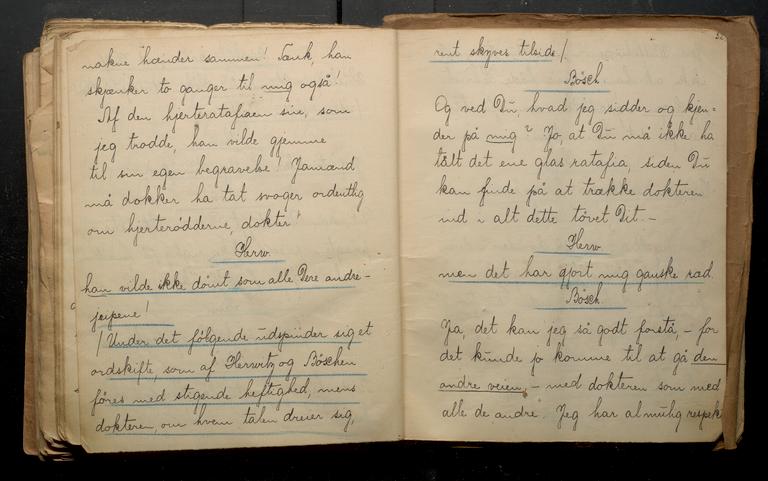 nakne hænder sammen! Tænk, han
skjænker to ganger til mig også!
Af den hjerteratafiaen sin, som
jeg trodde, han vilde gjemme
til sin egen begravelse! Jamænd
må dokker ha tat svoger ordentlig
om hjerterödderne, dokter"
Herw.
han vilde ikke dömt som alle Dere andre –
! Under det fölgende udspinder sig et
ordskifte, som af Herwitz og Böschen
föres med stigende heftighed, mens
dokteren, om hvem talen dreier sig,
32
rent skyves tilside /.
Bösch
Og ved Du, hvad jeg sidder og kjen=
der på mig? Jo, at Du må ikke ha
tålt det ene glas ratafia, siden Du
kan finde på at trække dokteren
ind i alt dette tövet Dit –
Herw
men det har gjort mig ganske rad
Bösch
Ja, det kan jeg så godt forstå, – for
det kunde jo komme til at gå den
andre veien, – med dokteren som med
alle de andre. Jeg har almulig respek